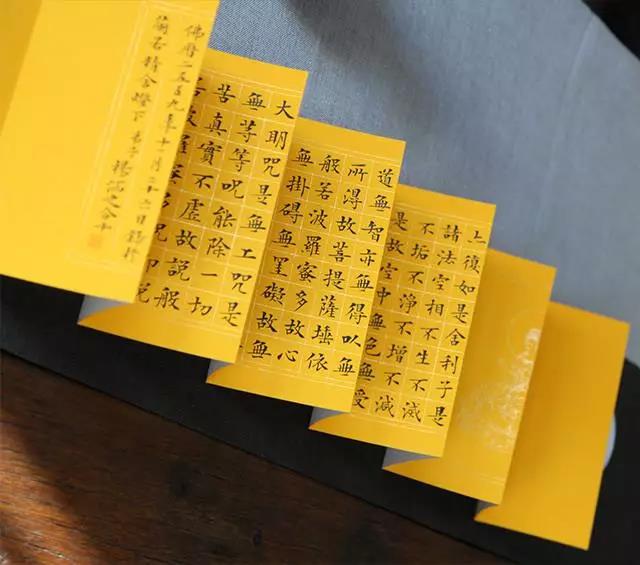 亦復如是舍利子是
諸法空相不生不滅
不垢不淨不增不減
是故空中無色無受
道無智亦無得以無
所得故菩提薩埵依
般若波羅蜜多故心
無掛碍無罣礙故無
大明咒是無上咒是
無等等呪能除一切
苦真實不虛故說般
佛曆二五五九年十一月二十六日錄於
蘭若精舍燈下弟子楊涵之合十